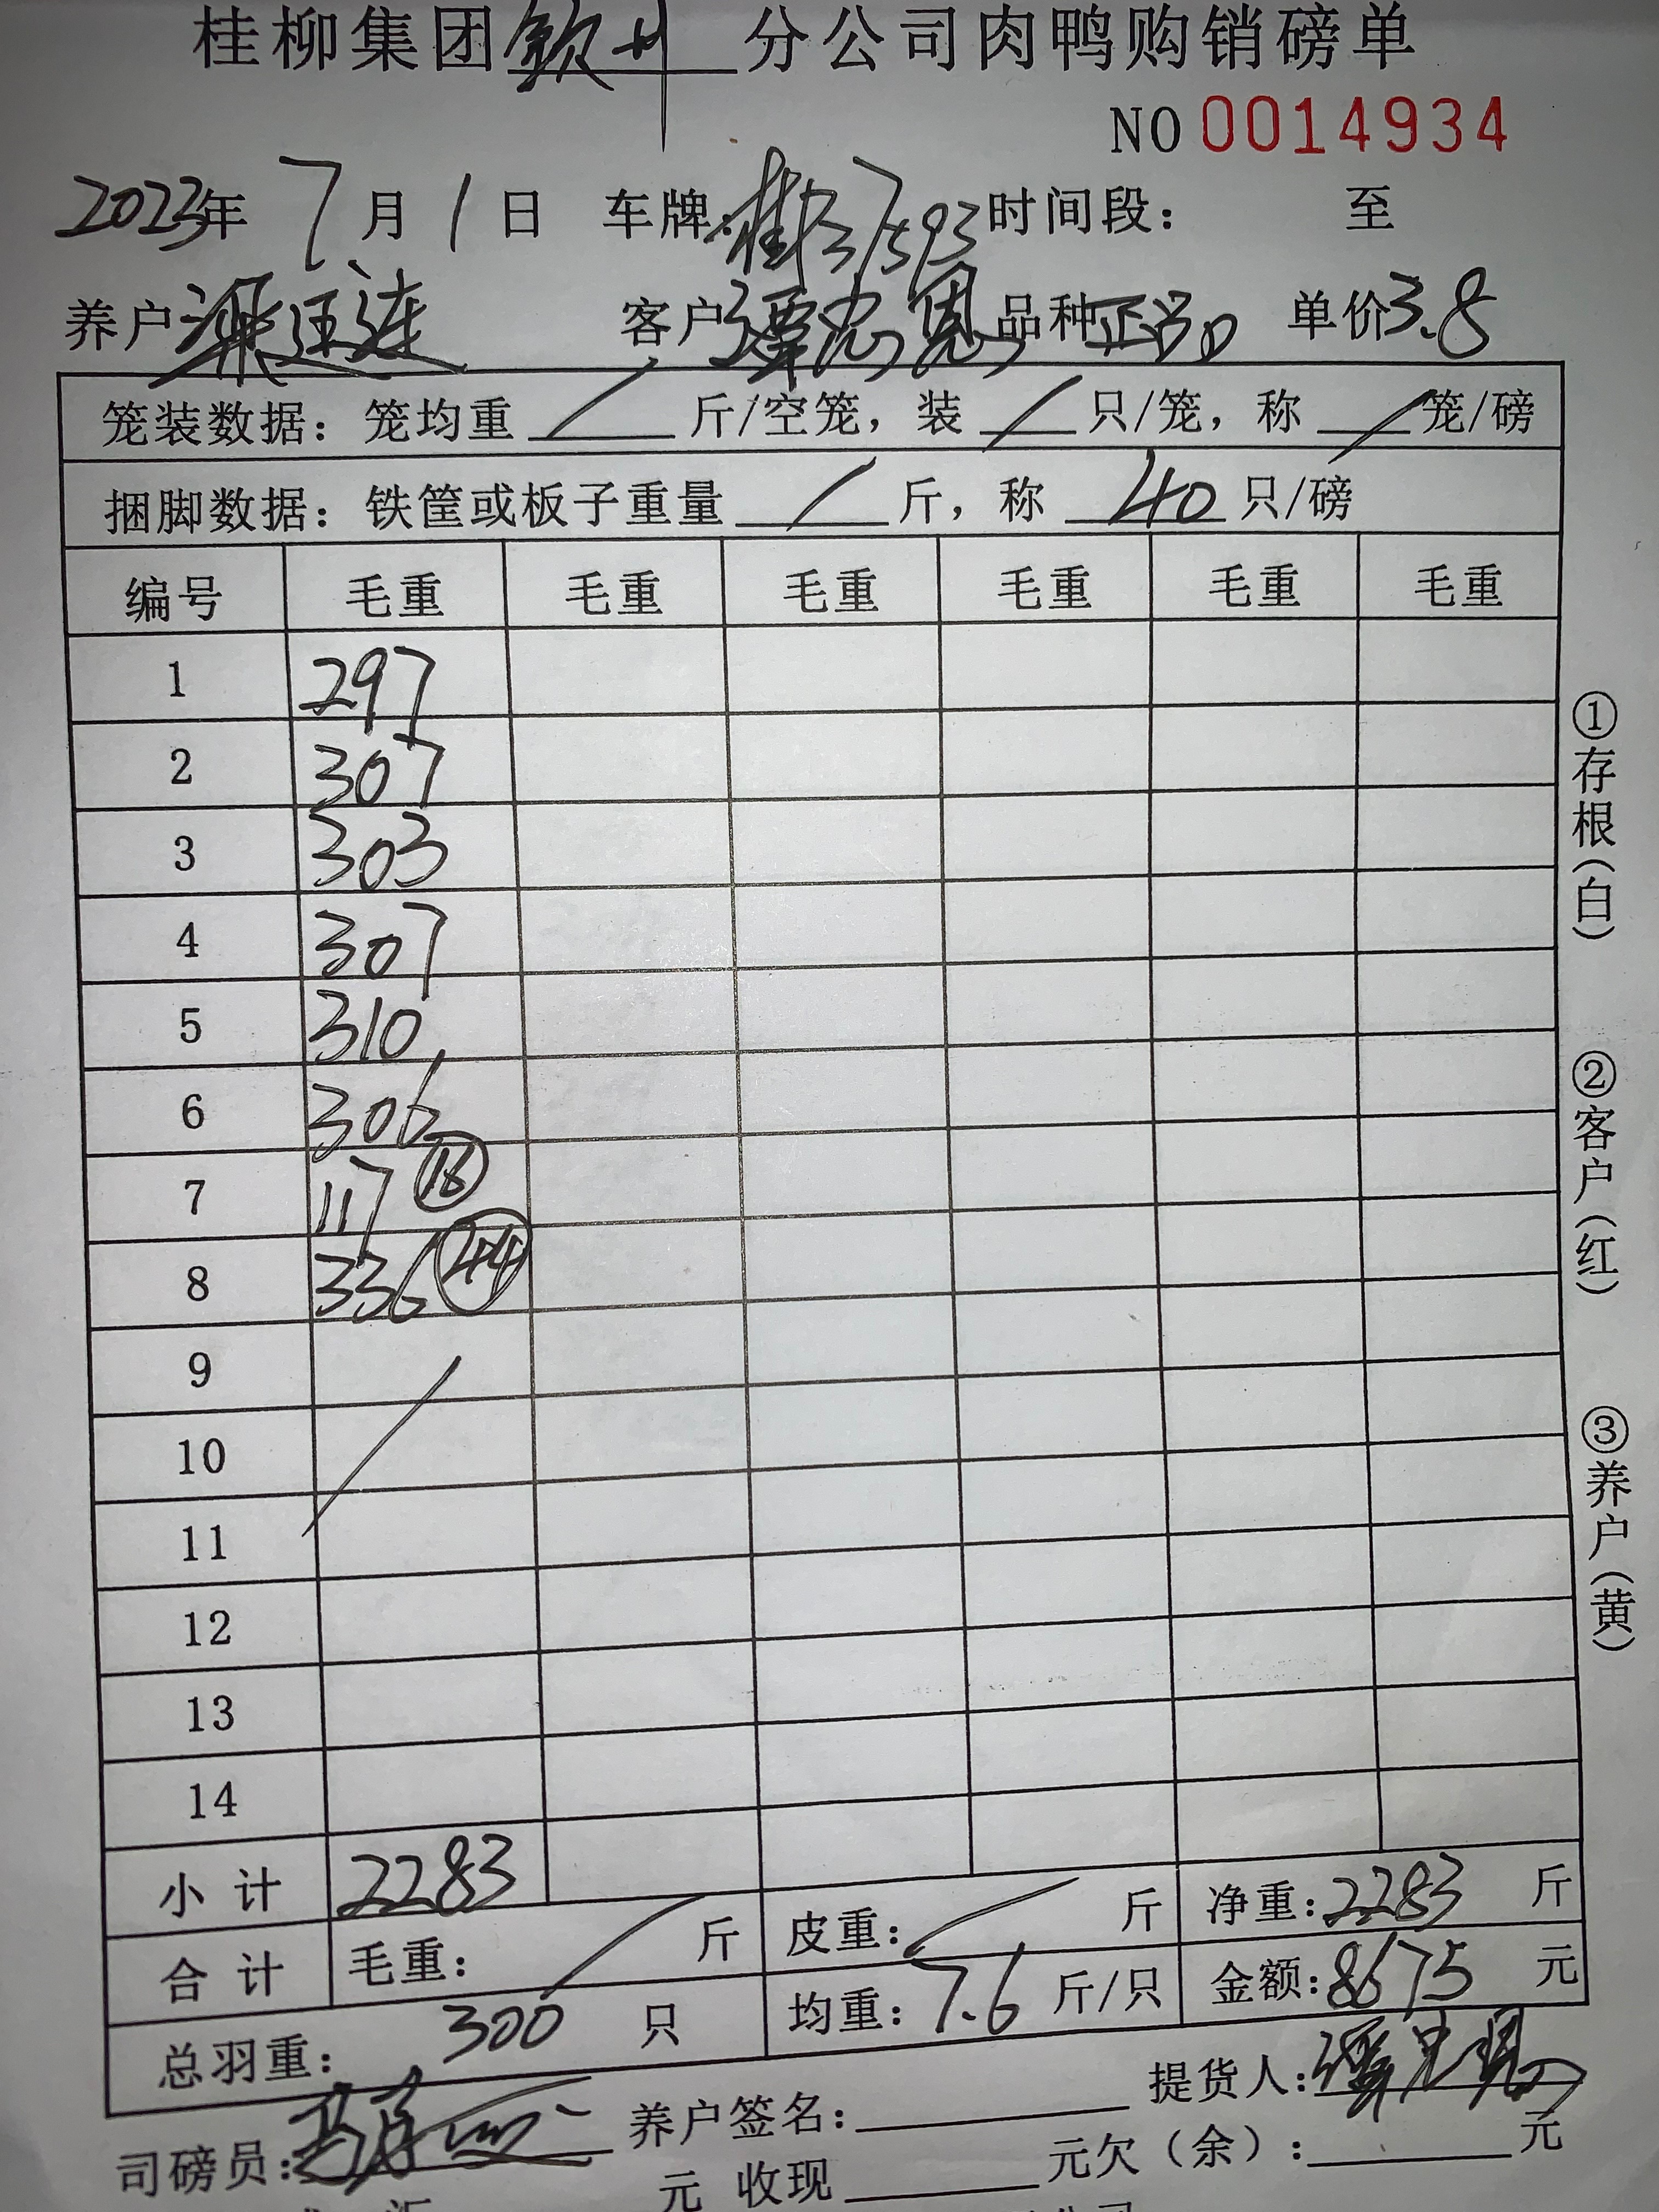 桂柳集团钦州分公司肉鸭购销磅单
NO 0014934
2023年 7月 1日 车牌:桂 37593 时间段: 至
养户 梁 连 客户 覃忠恩 品种 正品 单价3.8
笼装数据: 笼均重 / 斤/空笼, 装 / 只/笼, 称 / 笼/磅
捆脚数据: 铁筐或板子重量 / 斤, 称 40 只/磅
编号 毛重 毛重 毛重 毛重 毛重 毛重
1 297
2 307
3 303
4 307
5 310
6 306
7 117 ⑱
8 336 ㊹
9
10
11
12
13
14
小计 2283
合计 毛重: / 斤 皮重: / 斤 净重:2283 斤
总羽重: 300 只 均重: 7.6 斤/只 金额:8675 元
司磅员: 养户签名: 提货人:覃忠恩
元 收现 元欠(余): 元
①存根(白)
②客户(红)
③养户(黄)